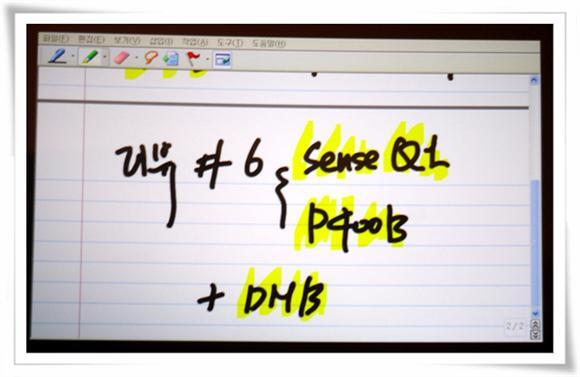 파일(F) 편집(E) 보기(V) 삽입(I) 작업(A) 도구(T) 도움말(H)
리뷰 #6 { Sense Q1
P400B
+ DMB
2/2